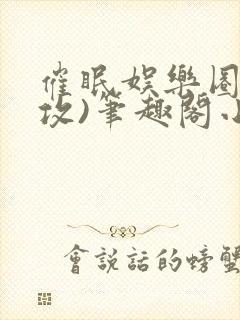 催眠娛樂圈
攻)筆趣閣小
會說話的螃蟹